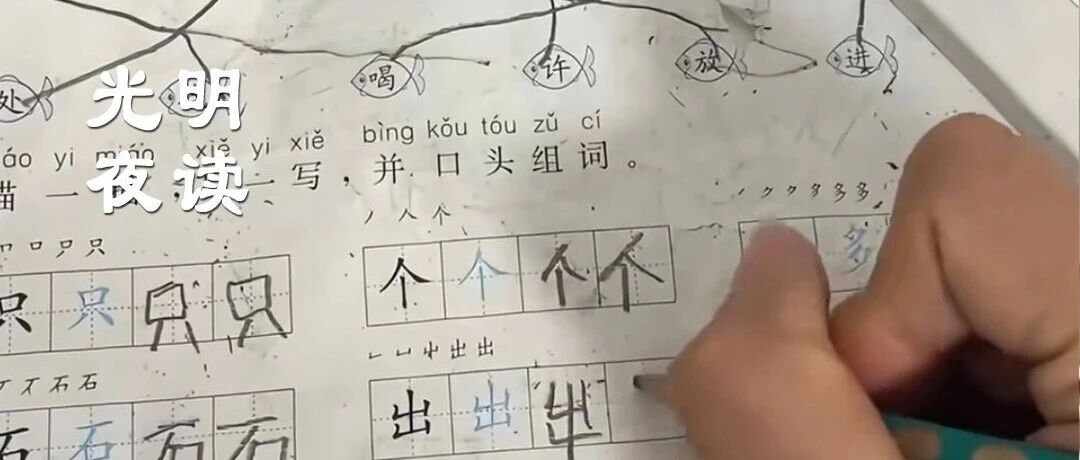 处 喝 许 放 进
光明
夜读
xiě yi xiě bìng kǒu tóu zǔ cí
描一 一写,并口头组词。
丨 口 口 只 只 丿 人 个 丿 ク 夕 多 多 多
只 只 只 只 个 个 个 个 多
一 丆 不 石 石 ㄴ 凵 屮 出 出
石 石 石 石 出 出 出